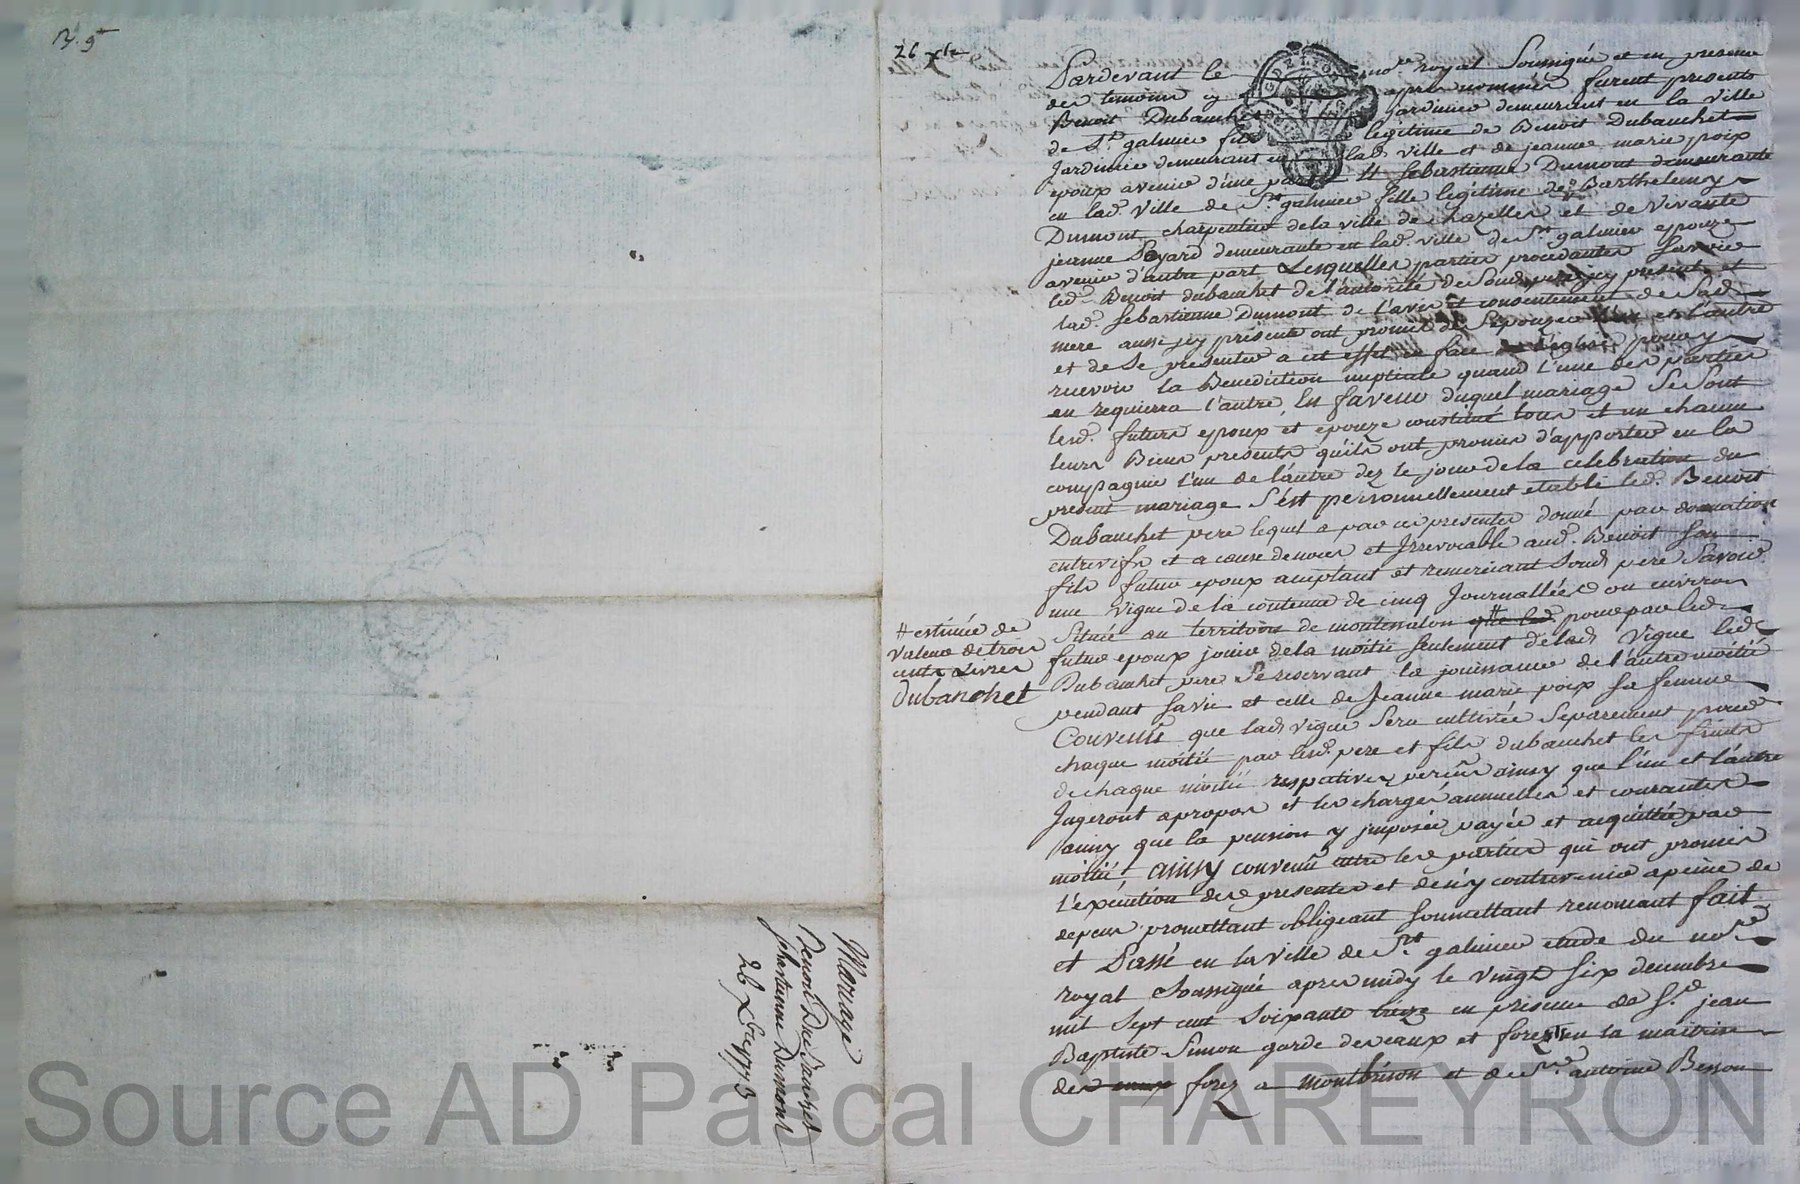 26 xbre
Pardevant le nore royal Soussigné et en presence
des temoins cy apres nommés furent presents
Benoit Dubanchet jardinier demeurant en la ville
de St galmier fils legitime de Benoit Dubanchet
Jardinier demeurant en lade ville et de jeanne marie poix
epoux avenir d'une part Et Sebastienne Dumont demeurante
en lad. ville de St galmier fille legitime de Barthelemy
Dumont charpentier de la ville de chazelles et de vivante
jeanne Payard demeurante en lad. ville de St galmier epouze
avenir d'autre part Lesquelles parties procedantes Savoir
led. Benoit dubanchet de l'autorité de Sond. pere icy present et
lad. Sebastienne Dumont de l'avis et consentement de Sad.
mere aussi icy présente ont promis de S'epouzer l'un et l'autre
et de Se presenter a cet effet en face l'eglise pour y
recevoir la Benediction nuptiale quand l'une des parties
en requierra l'autre, En faveur duquel mariage Se Sont
lesd. futurs epoux et epouze constitué tous et un chacun
leurs Biens presents qu'ils ont promis d'apporter en la
compagnie l'un de l'autre dez le jour de la celebration du
present mariage S'est personnellement etabli led. Benoit
Dubanchet pere lequel a par ces presentes donné par donation
entrevifs et a cause de noces et Irrevocable aud. Benoit Son
fils futur epoux acceptant et remerciant Sond. pere Savoir
une vigne de la contenue de cinq Journallées ou environ
Située au territoire de montessalon # pour par led.
futur epoux jouir de la moitié Seulement de lad. vigne led.
Dubanchet pere Se reservant la jouissance de l'autre moitié
pendant Sa vie et celle de Jeanne marie poix Sa femme
Convenu que lad. vigne Sera cultivée Separement pour
chaque moitié par lesd. pere et fils dubanchet les fruits
de chaque moitié respective perçus ainsy que l'un et l'autre
Jugeront apropos et les charges annuelles et courantes
ainsy que la pension y imposée payée et acquittée par
moitié, ainsy convenu entre les parties qui ont promis
l'exécution des presentes et de n'y contrevenir a peine de
depens promettant obligeant Soumettant renoncant fait
et Passé en la ville de St galmier etude du nore
royal Soussigné apres midy le vingt Six decembre
mil Sept cent Soixante treize en présence de Sr jean
Baptiste Simon garde des eaux et forets en la maitrise
des forez a montbrison et de Sr antoine Besson
# estimée de
valeur de trois
cents Livres
Dubanchet
Mariage
Benoit Du Banchet
Sebastienne Dumont
26 Xbre 1773
Source AD Pascal CHAREYRON